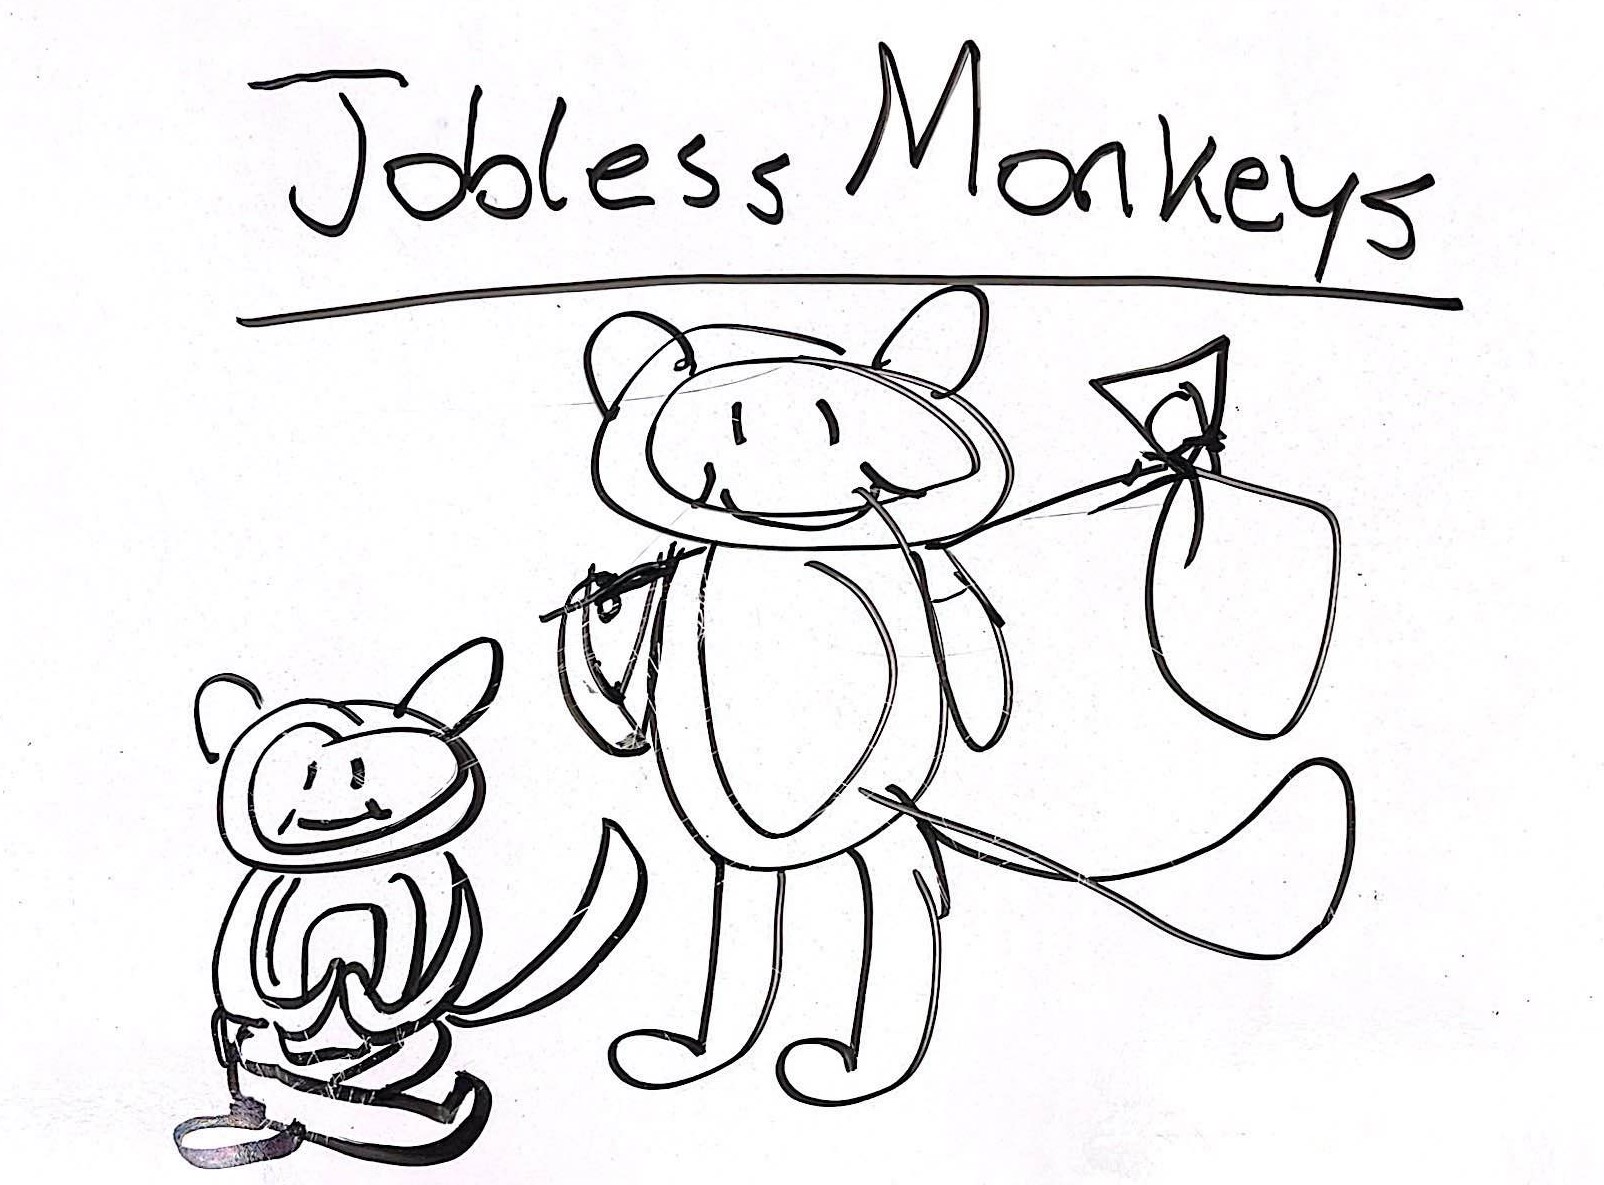 Jobless Monkeys